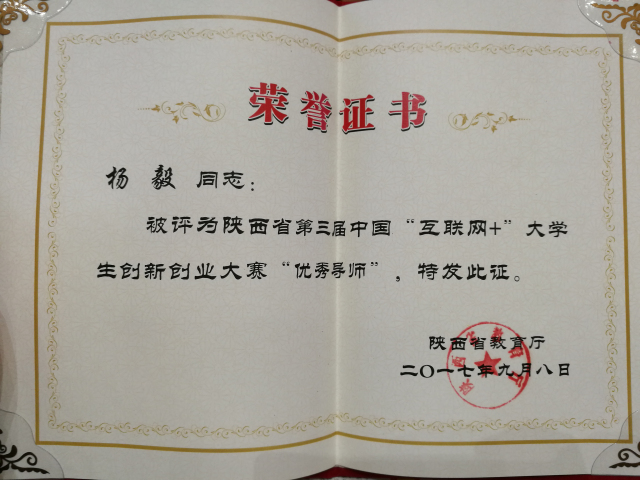 荣誉证书
杨毅 同志：
被评为陕西省第三届中国“互联网+”大学
生创新创业大赛“优秀导师”，特发此证。
陕西省教育厅
二〇一七年九月八日
陕西省教育厅